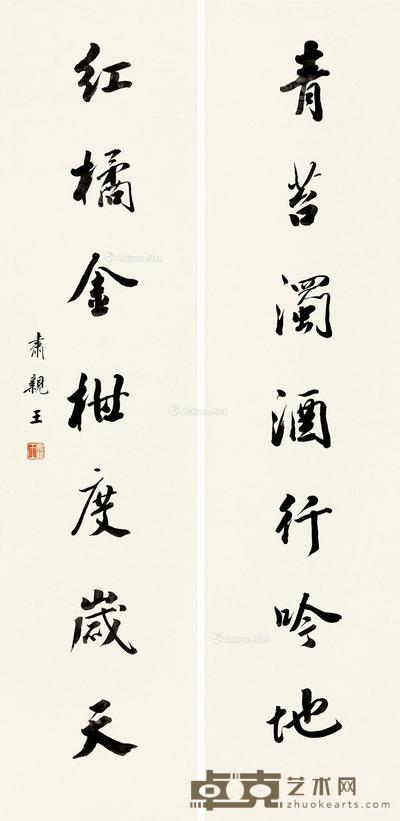 青苔濁酒行吟地
紅橘金柑度歲天
肅親王
Artron.Net
Artron.Net
Artron.Net
卓克艺术网
zhuokearts.com